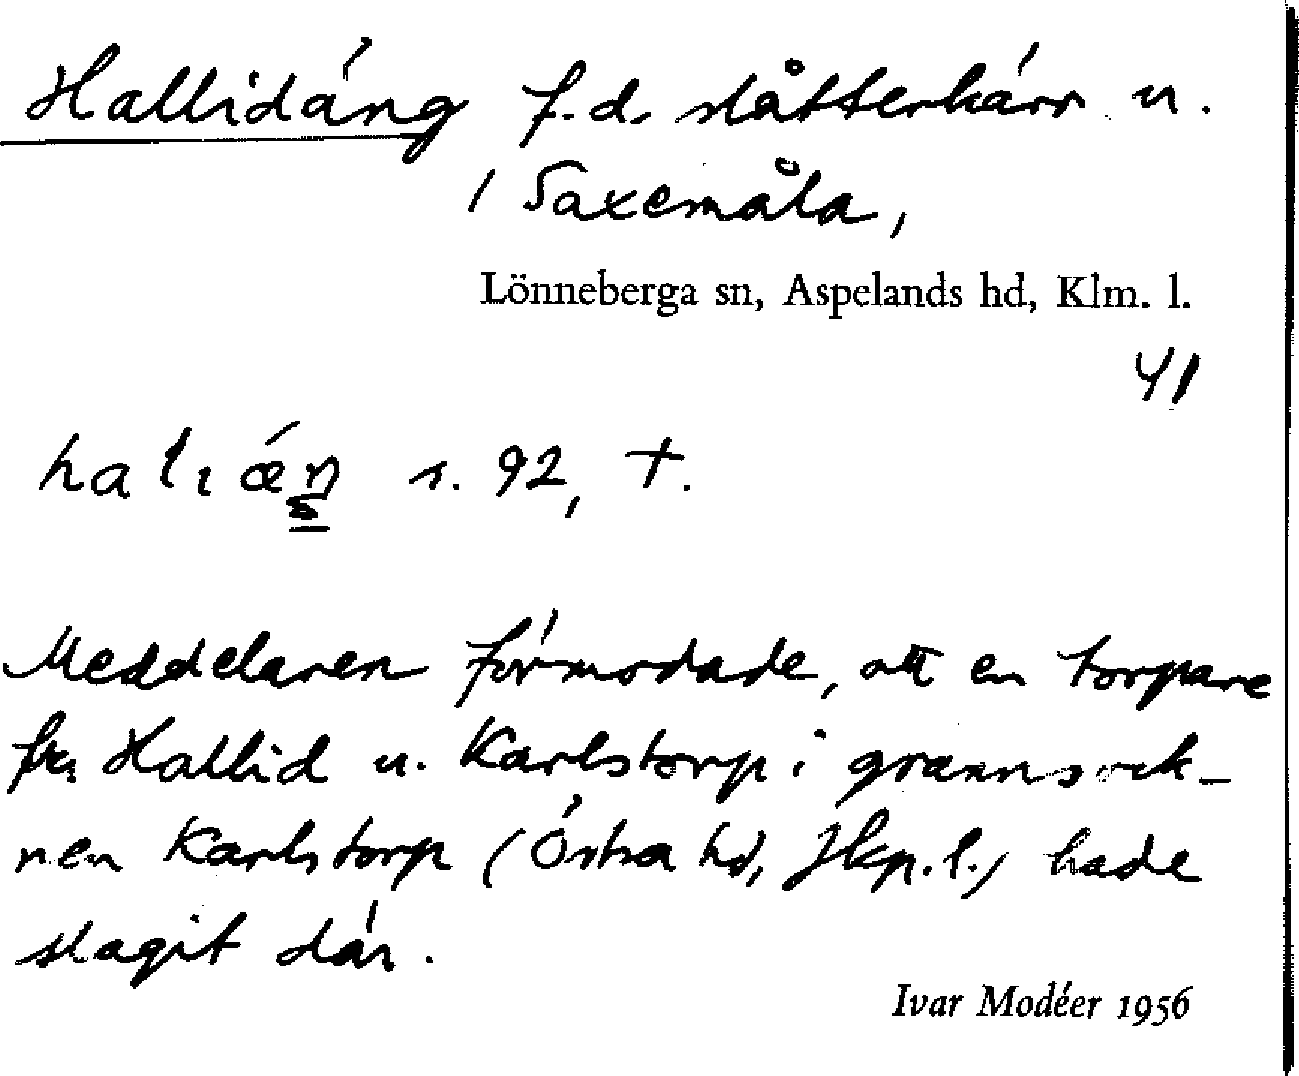 Hallidäng f.d. slåtterkärr u.
/ Saxemåla,
Lönneberga sn, Aspelands hd, Klm. l.
41
s. 92, †.
Meddelaren förmodade, att en torpare
från Hallid u. Karlstorp i grannsock-
nen Karlstorp (Östra hd, Jkp. l.) hade
slagit där.
Ivar Modéer 1956